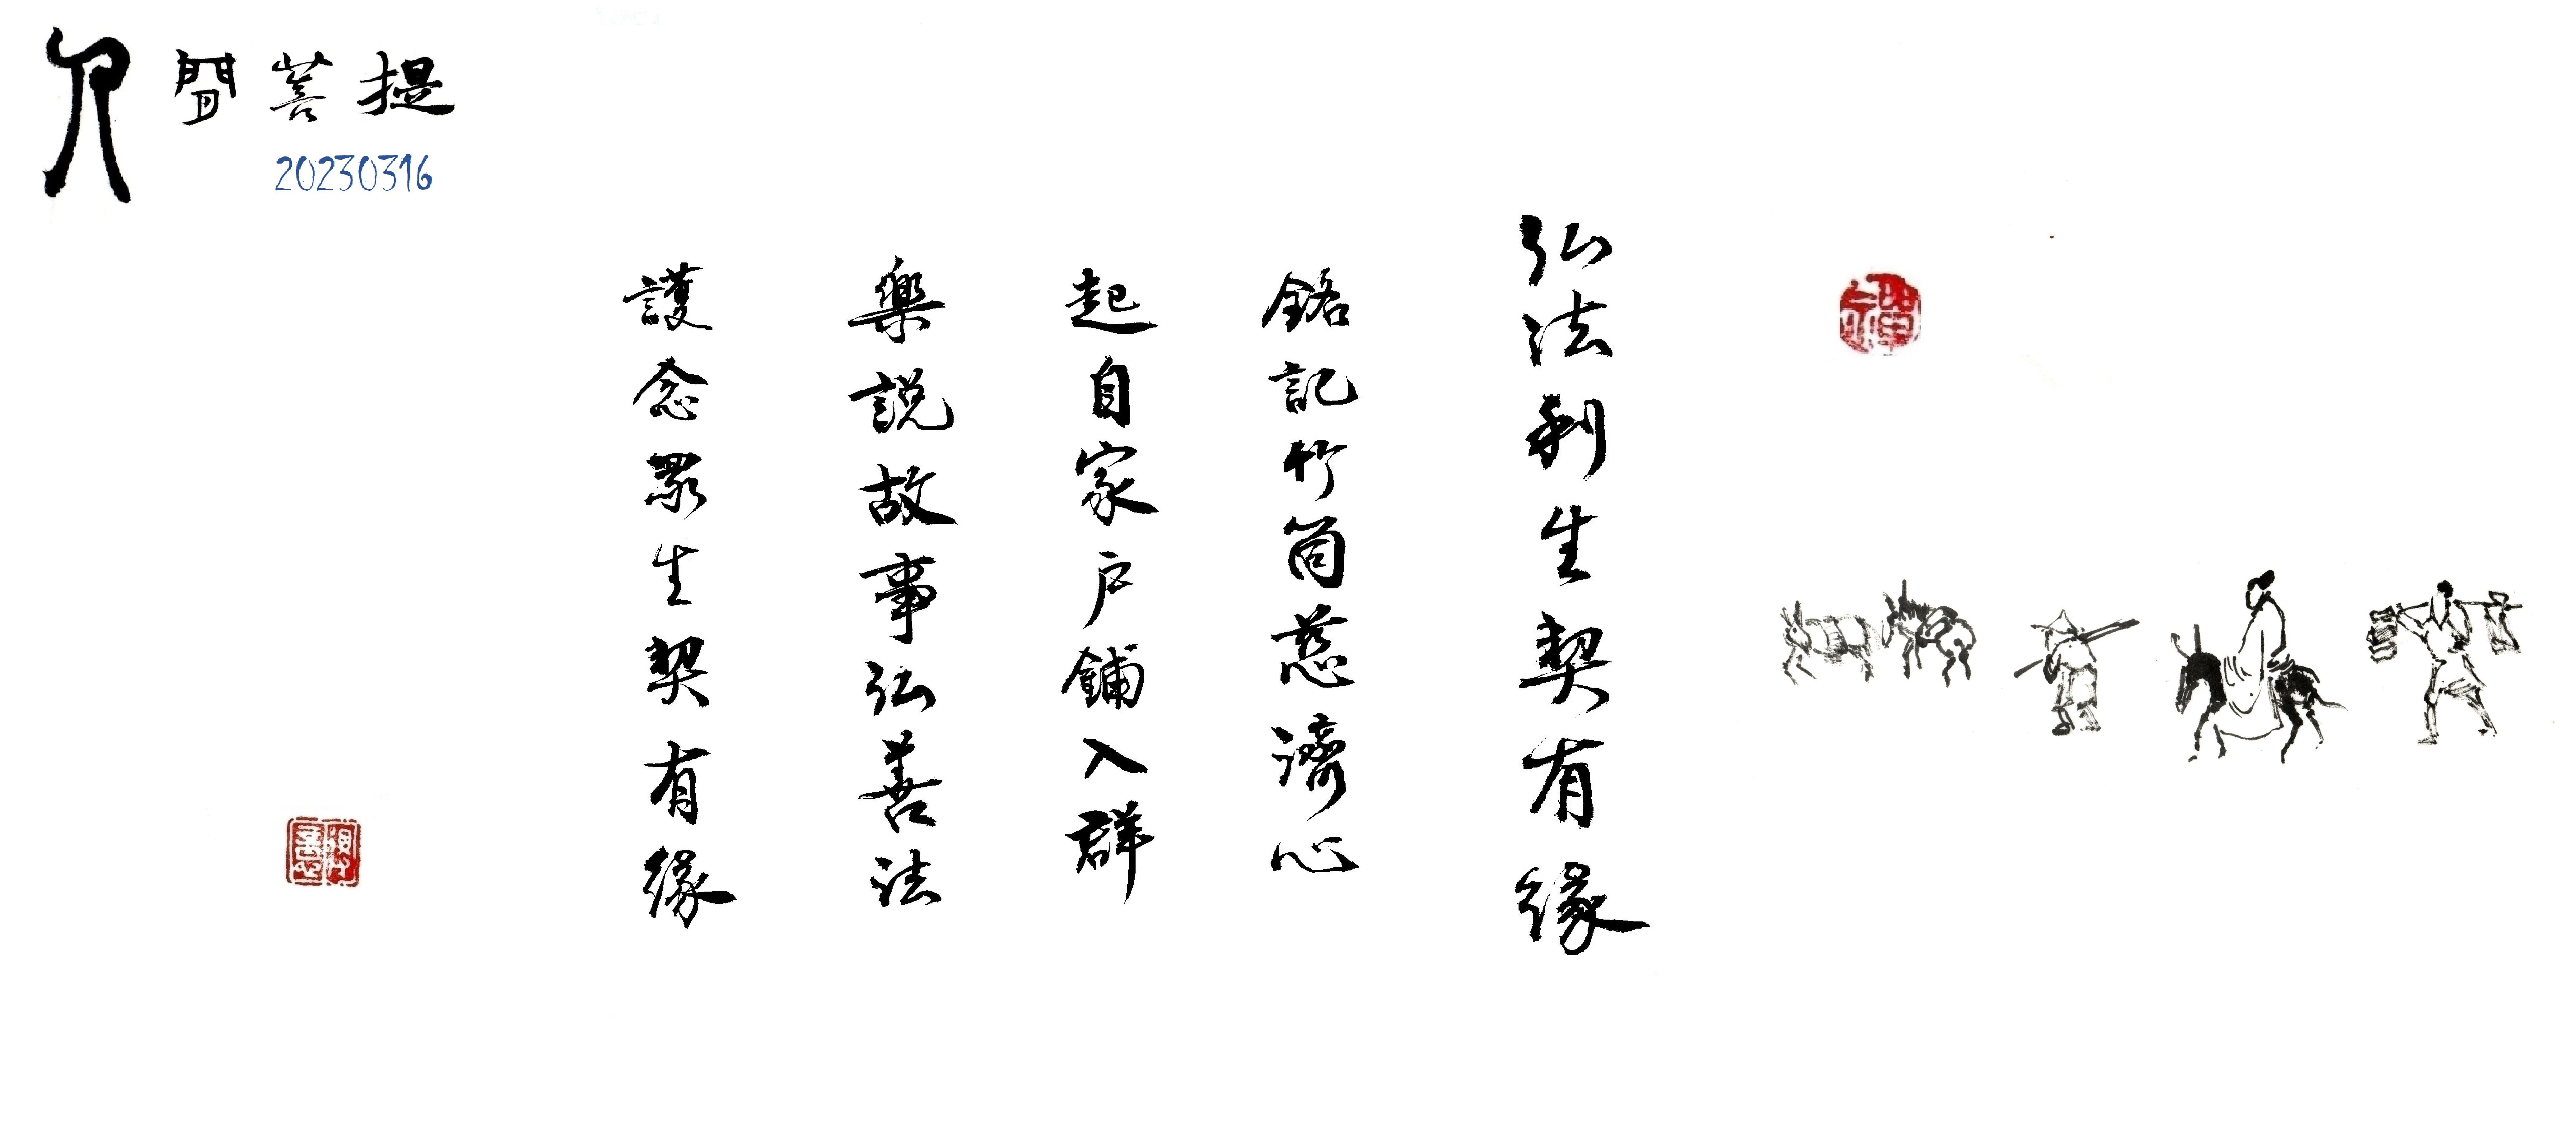 人間菩提
20230316
弘法利生契有緣
銘記竹筒慈濟心
起自家戶鋪入群
樂說故事弘善法
護念眾生契有緣
禪